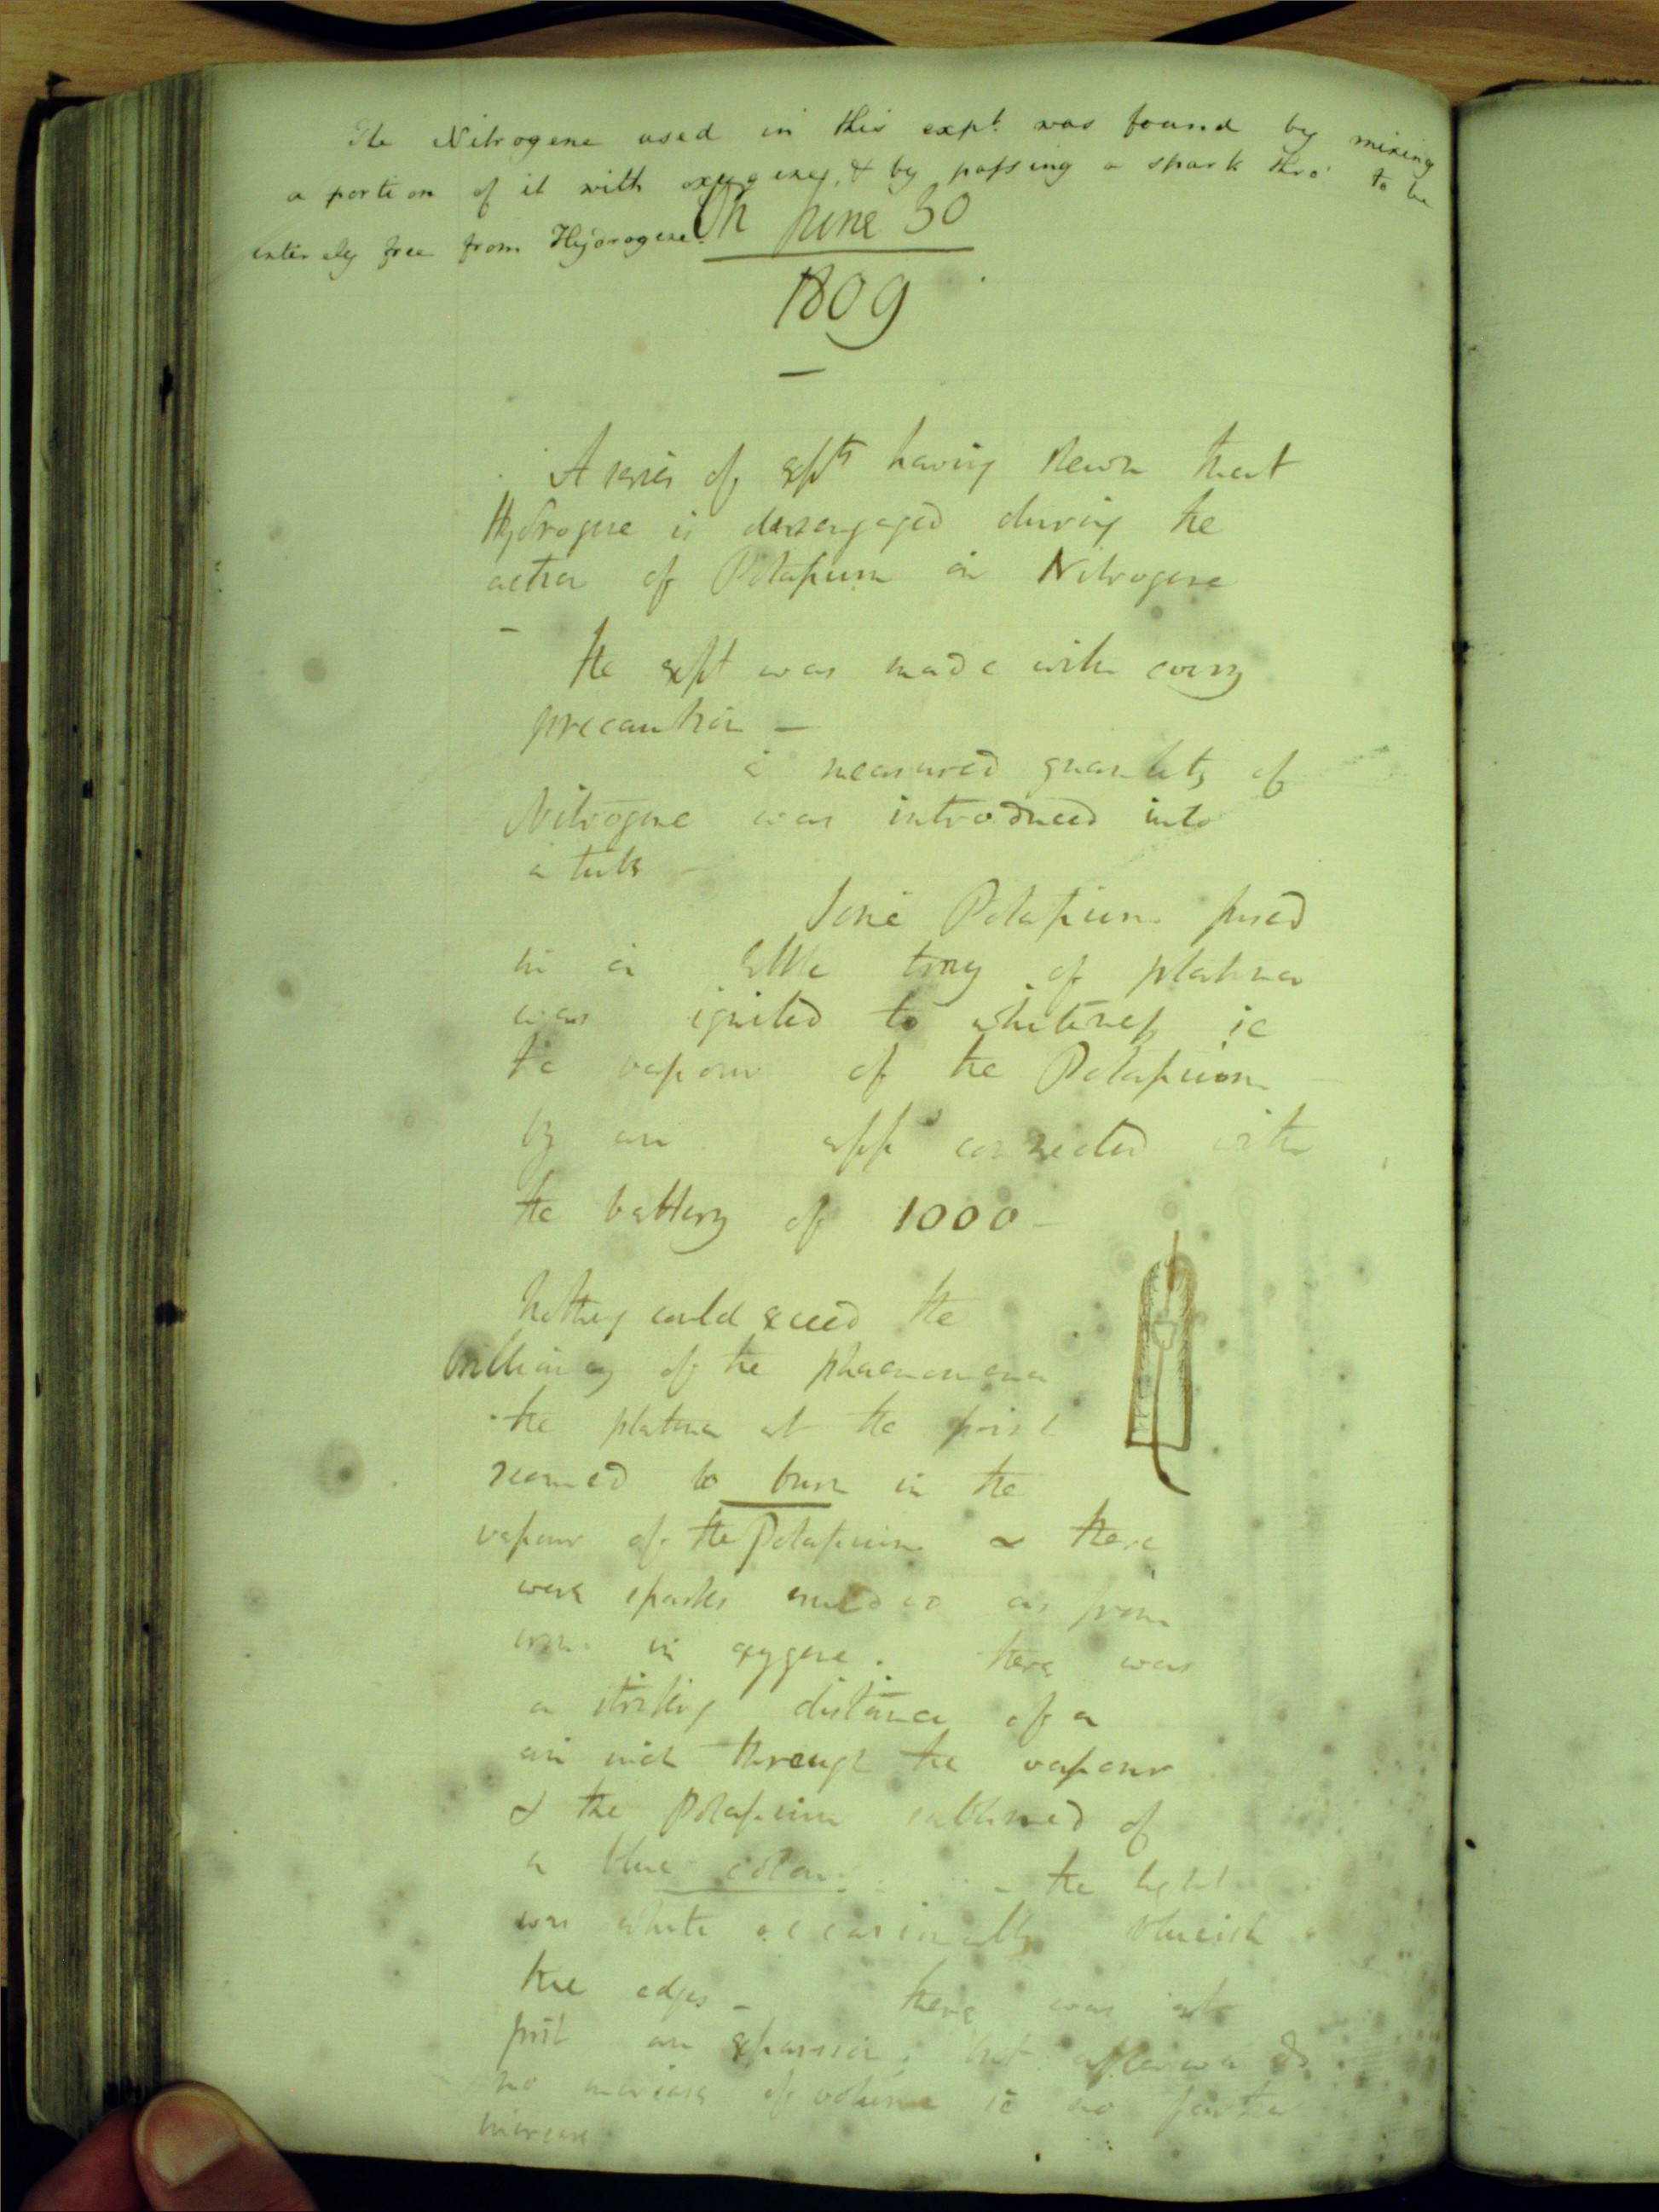 The Nitrogene used in this expt. was found by mixing
a portion of it with oxygene, & by passing a spark thro' to be
entirely free from Hydrogene.
On June 30
1809
A series of expts having shewn that
Hydrogene is disengaged during the
action of Potassium on Nitrogene
The expt was made with every
precaution -
a measured quantity of
Nitrogene was introduced into
a tube -
Some Potassium fused
in a little tray of platina
was ignited to whiteness ie
the vapour of the Potassium
by an app connected with
the battery of 1000 -
Nothing could exceed the
brilliancy of the phaenomena
the platina at the point
seemed to burn in the
vapour of the Potassium & there
were sparks as from
iron in oxygene. there was
a striking distance of a
an inch through the vapour
& the Potassium sublimed of
a blue colour - the light
was white occasionally blueish
the edges - there was at
first an expansion, but afterwards
no increase of volume ie no farther
increase